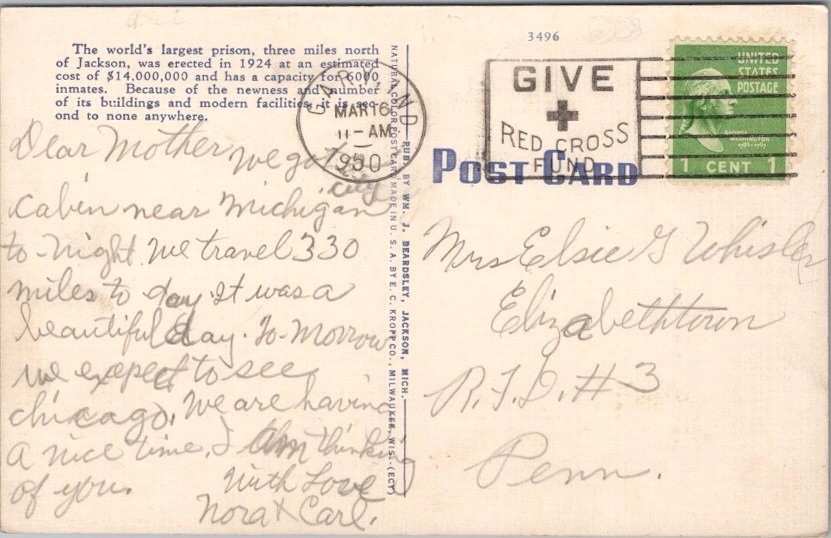 3496
The world's largest prison, three miles north
of Jackson, was erected in 1924 at an estimated
cost of $14,000,000 and has a capacity for 6000
inmates. Because of the newness and number
of its buildings and modern facilities it is sec-
ond to none anywhere.
NATURAL COLOR POST CARD MADE IN U. S. A. BY E. C. KROPP CO., MILWAUKEE, WIS. (ECY)
PUB. BY WM. J. BEARDSLEY, JACKSON, MICH.
GARY, IND
MAR 16
11-AM
GIVE
RED CROSS
FUND
UNITED
STATES
POSTAGE
WASHINGTON
1 CENT 1
POST CARD
Dear Mother we got
city
cabin near Michigan
to-night we travel 330
miles to day. It was a
beautiful day. To-morrow
we expect to see
chicago. We are having
a nice time. I am thinking
of you. With Love
Nora & Carl.
Mrs Elsie G Whisler
Elizabethtown
R.F.D. #3
Penn.